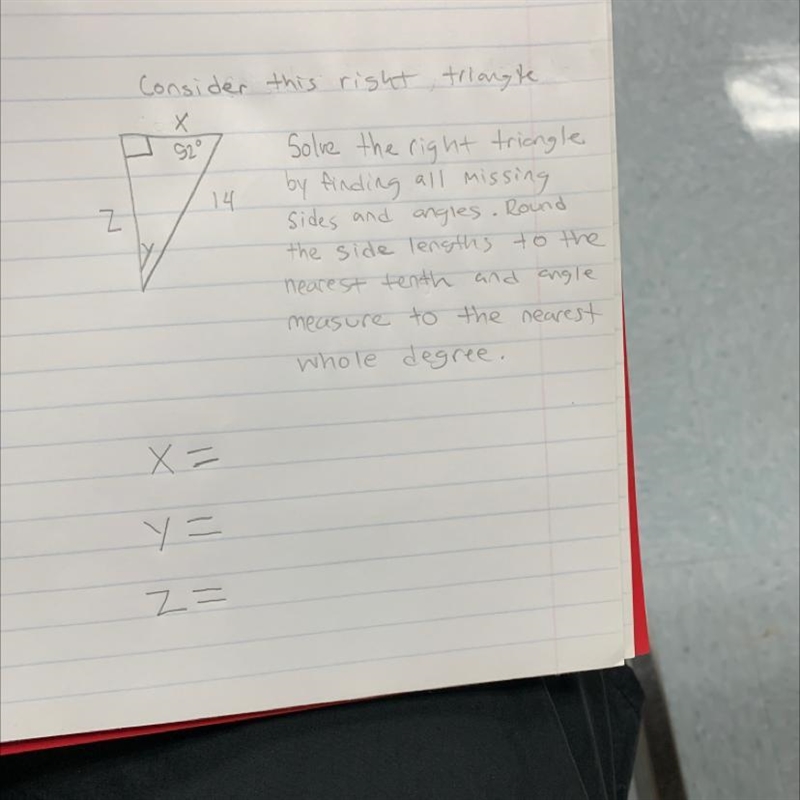 Consider this right triangle
X
52°
Z
14
Y
Solve the right triangle
by finding all missing
sides and angles. Round
the side lengths to the
nearest tenth and angle
measure to the nearest
whole degree.
X =
Y =
Z =